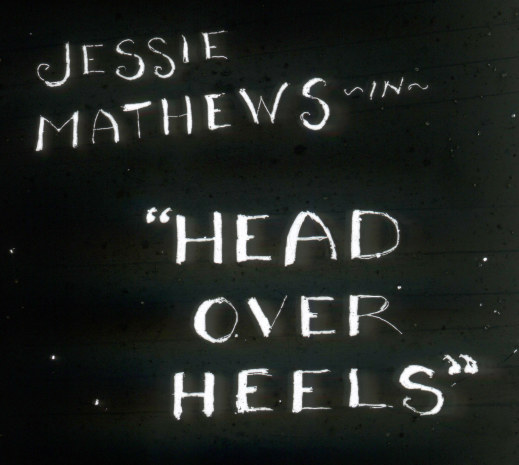 JESSIE
MATHEWS ~IN~
"HEAD
OVER
HEELS"